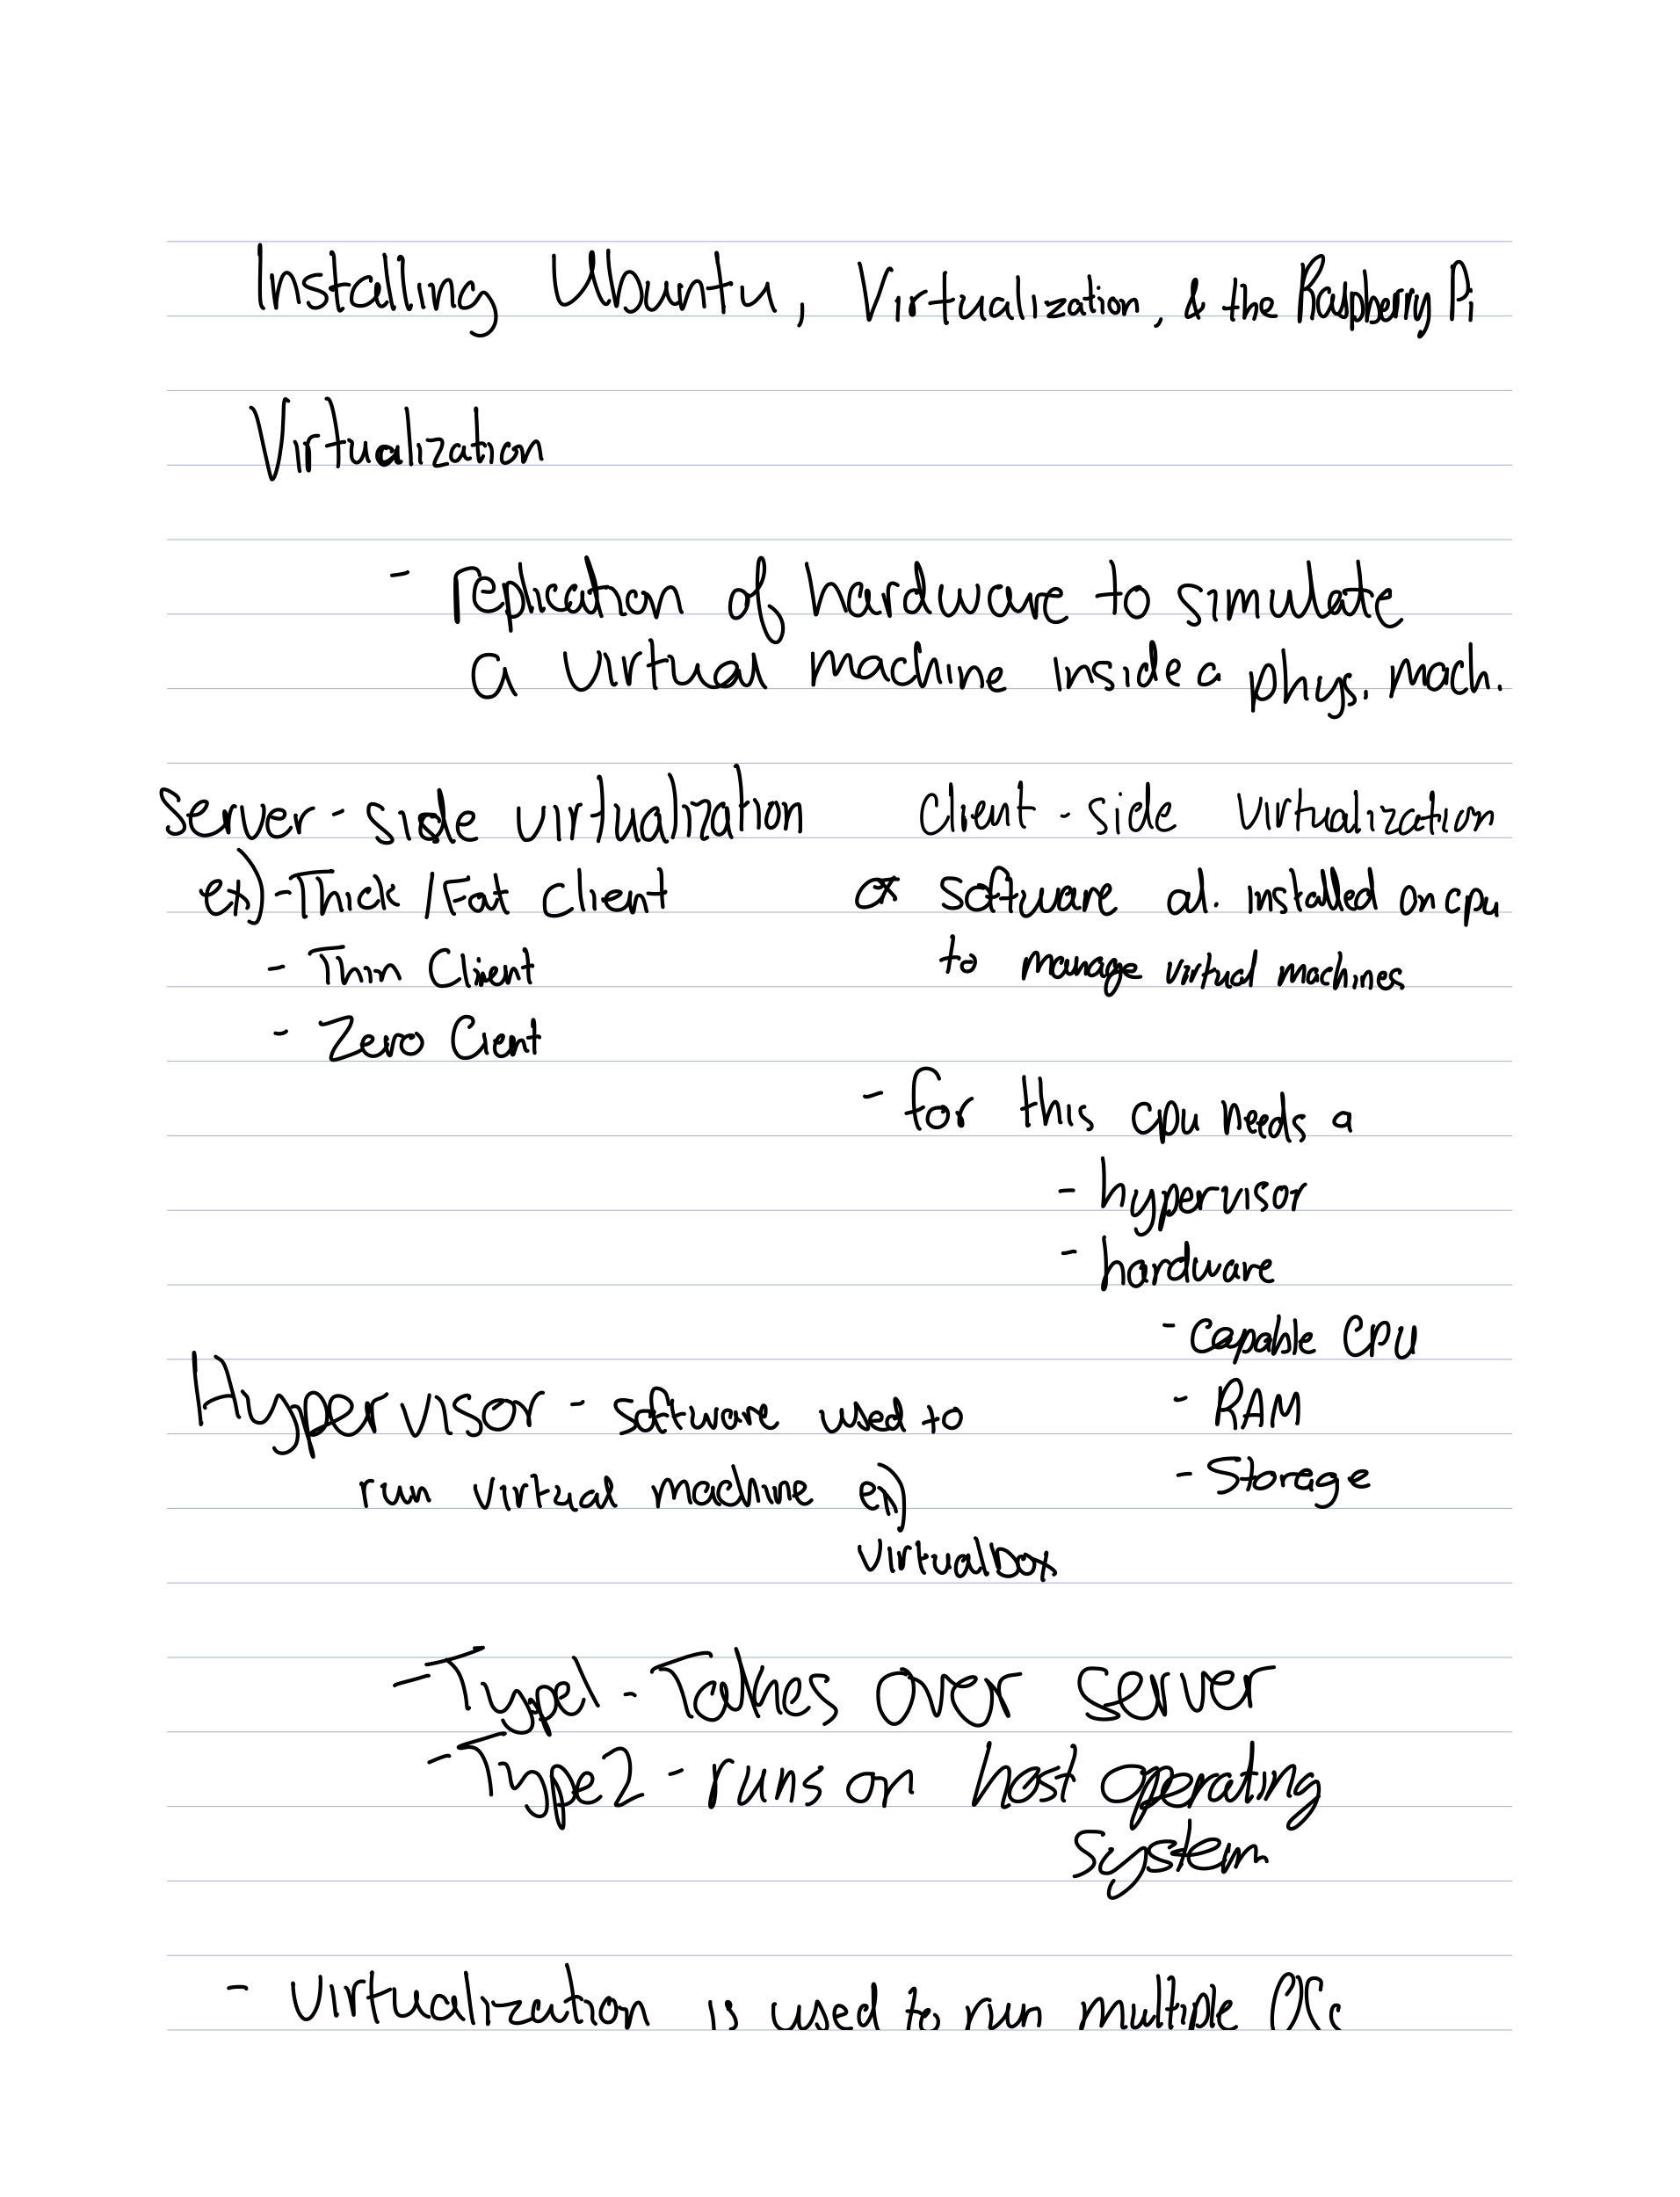 Installing Ubuntu, Virtualization, & the Raspberry Pi
Virtualization
- replication of hardware to simulate
a virtual machine inside a phys. mach.
Server-side virtualization
ex) - Thick / Fat client
- Thin Client
- Zero Client
Client-side virtualization
software al. installed on cpu
to manage virtual machines
- for this cpu needs a
- hypervisor
- hardware
- capable CPU
- RAM
- Storage
Hypervisor - software used to
run virtual machine ex)
virtualbox
- Type 1 - Takes over server
- Type 2 - runs on host operating
system
- Virtualization is used to run multiple